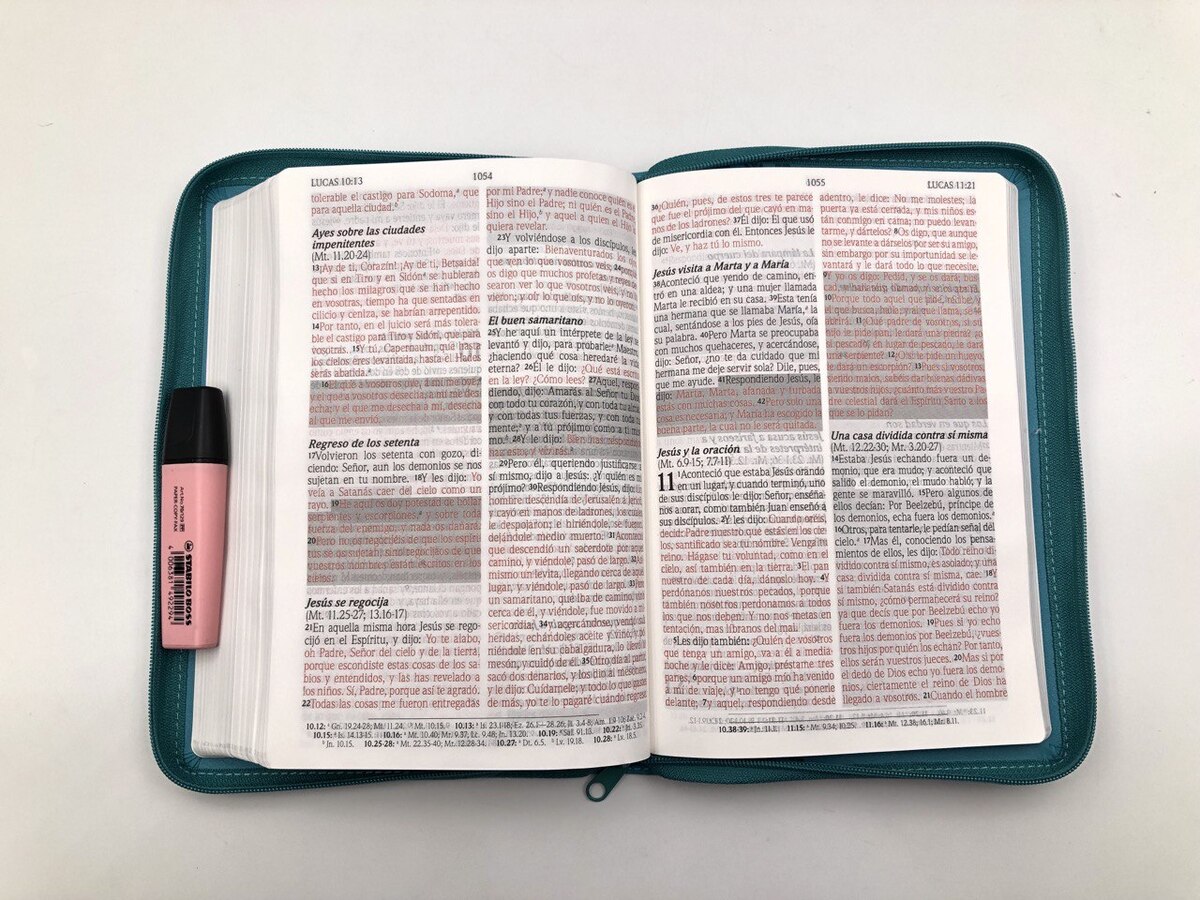 LUCAS 10:13
1054
tolerable el castigo para Sodoma,ᵃ que
para aquella ciudad.ᵇ
Ayes sobre las ciudades
impenitentes
(Mt. 11.20-24)
13¡Ay de ti, Corazín! ¡Ay de ti, Betsaida!
que si en Tiro y en Sidónᵃ se hubieran
hecho los milagros que se han hecho
en vosotras, tiempo ha que sentadas en
cilicio y ceniza, se habrían arrepentido.
14Por tanto, en el juicio será más tolera-
ble el castigo para Tiro y Sidón, que para
vosotras. 15Y tú, Capernaum, que hasta
los cielos eres levantada, hasta el Hades
serás abatida.
16El que a vosotros oye, a mí me oye;
y el que a vosotros desecha, a mí me dese-
cha; y el que me desecha a mí, desecha
al que me envió.
Regreso de los setenta
17Volvieron los setenta con gozo, di-
ciendo: Señor, aun los demonios se nos
sujetan en tu nombre. 18Y les dijo: Yo
veía a Satanás caer del cielo como un
rayo. 19He aquí os doy potestad de hollar
serpientes y escorpiones, y sobre toda
fuerza del enemigo, y nada os dañará.
20Pero no os regocijéis de que los espíri-
tus se os sujetan, sino regocijaos de que
vuestros nombres están escritos en los
cielos.
Jesús se regocija
(Mt. 11.25-27; 13.16-17)
21En aquella misma hora Jesús se rego-
cijó en el Espíritu, y dijo: Yo te alabo,
oh Padre, Señor del cielo y de la tierra,
porque escondiste estas cosas de los sa-
bios y entendidos, y las has revelado a
los niños. Sí, Padre, porque así te agradó.
22Todas las cosas me fueron entregadas
por mi Padre; y nadie conoce quién es el
Hijo sino el Padre; ni quién es el Padre,
sino el Hijo,ᵇ y aquel a quien el Hijo lo
quiera revelar.
23Y volviéndose a los discípulos, les
dijo aparte: Bienaventurados los ojos
que ven lo que vosotros veis; 24porque
os digo que muchos profetas y reyes de-
searon ver lo que vosotros veis, y no lo
vieron; y oír lo que oís, y no lo oyeron.
El buen samaritano
25Y he aquí un intérprete de la ley se
levantó y dijo, para probarle: Maestro,
¿haciendo qué cosa heredaré la vida
eterna? 26Él le dijo: ¿Qué está escrito
en la ley? ¿Cómo lees? 27Aquel, respon-
diendo, dijo: Amarás al Señor tu Dios
con todo tu corazón, y con toda tu alma,
y con todas tus fuerzas, y con toda tu
mente; y a tu prójimo como a ti mis-
mo. 28Y le dijo: Bien has respondido;
haz esto, y vivirás.
29Pero él, queriendo justificarse a sí
mismo, dijo a Jesús: ¿Y quién es mi
prójimo? 30Respondiendo Jesús, dijo: Un
hombre descendía de Jerusalén a Jericó,
y cayó en manos de ladrones, los cuales
le despojaron; e hiriéndole, se fueron,
dejándole medio muerto. 31Aconteció
que descendió un sacerdote por aquel
camino, y viéndole, pasó de largo. 32Asi-
mismo un levita, llegando cerca de aquel
lugar, y viéndole, pasó de largo. 33Pero
un samaritano, que iba de camino, vino
cerca de él, y viéndole, fue movido a mi-
sericordia; 34y acercándose, vendó sus
heridas, echándoles aceite y vino; y po-
niéndole en su cabalgadura, lo llevó al
mesón, y cuidó de él. 35Otro día al partir,
sacó dos denarios, y los dio al mesonero,
y le dijo: Cuídamele; y todo lo que gastes
de más, yo te lo pagaré cuando regrese.
1055
LUCAS 11:21
36¿Quién, pues, de estos tres te parece
que fue el prójimo del que cayó en ma-
nos de los ladrones? 37Él dijo: El que usó
de misericordia con él. Entonces Jesús le
dijo: Ve, y haz tú lo mismo.
Jesús visita a Marta y a María
38Aconteció que yendo de camino, en-
tró en una aldea; y una mujer llamada
Marta le recibió en su casa. 39Esta tenía
una hermana que se llamaba María,ᵃ la
cual, sentándose a los pies de Jesús, oía
su palabra. 40Pero Marta se preocupaba
con muchos quehaceres, y acercándose,
dijo: Señor, ¿no te da cuidado que mi
hermana me deje servir sola? Dile, pues,
que me ayude. 41Respondiendo Jesús, le
dijo: Marta, Marta, afanada y turbada
estás con muchas cosas. 42Pero solo una
cosa es necesaria; y María ha escogido la
buena parte, la cual no le será quitada.
Jesús y la oración
(Mt. 6.9-15; 7.7-11)
11 1Aconteció que estaba Jesús orando
en un lugar, y cuando terminó, uno
de sus discípulos le dijo: Señor, enséña-
nos a orar, como también Juan enseñó a
sus discípulos. 2Y les dijo: Cuando oréis,
decid: Padre nuestro que estás en los cie-
los, santificado sea tu nombre. Venga tu
reino. Hágase tu voluntad, como en el
cielo, así también en la tierra. 3El pan
nuestro de cada día, dánoslo hoy. 4Y
perdónanos nuestros pecados, porque
también nosotros perdonamos a todos
los que nos deben. Y no nos metas en
tentación, mas líbranos del mal.
5Les dijo también: ¿Quién de vosotros
que tenga un amigo, va a él a media
noche y le dice: Amigo, préstame tres
panes, 6porque un amigo mío ha venido
a mí de viaje, y no tengo qué ponerle
delante; 7y aquel, respondiendo desde
adentro, le dice: No me molestes; la
puerta ya está cerrada, y mis niños es-
tán conmigo en cama; no puedo levan-
tarme, y dártelos? 8Os digo, que aunque
no se levante a dárselos por ser su amigo,
sin embargo por su importunidad se le-
vantará y le dará todo lo que necesite.
9Y yo os digo: Pedid, y se os dará; bus-
cad, y hallaréis; llamad, y se os abrirá.
10Porque todo aquel que pide, recibe; y
el que busca, halla; y al que llama, se le
abrirá. 11¿Qué padre de vosotros, si su
hijo le pide pan, le dará una piedra? ¿o
si pescado, en lugar de pescado, le dará
una serpiente? 12¿O si le pide un huevo,
le dará un escorpión? 13Pues si vosotros,
siendo malos, sabéis dar buenas dádivas
a vuestros hijos, ¿cuánto más vuestro Pa-
dre celestial dará el Espíritu Santo a los
que se lo pidan?
Una casa dividida contra sí misma
(Mt. 12.22-30; Mr. 3.20-27)
14Estaba Jesús echando fuera un de-
monio, que era mudo; y aconteció que
salido el demonio, el mudo habló; y la
gente se maravilló. 15Pero algunos de
ellos decían: Por Beelzebú, príncipe de
los demonios, echa fuera los demonios.ᵃ
16Otros, para tentarle, le pedían señal del
cielo.ᵃ 17Mas él, conociendo los pensa-
mientos de ellos, les dijo: Todo reino di-
vidido contra sí mismo, es asolado; y una
casa dividida contra sí misma, cae. 18Y
si también Satanás está dividido contra
sí mismo, ¿cómo permanecerá su reino?
ya que decís que por Beelzebú echo yo
fuera los demonios. 19Pues si yo echo
fuera los demonios por Beelzebú, ¿vues-
tros hijos por quién los echan? Por tanto,
ellos serán vuestros jueces. 20Mas si por
el dedo de Dios echo yo fuera los demo-
nios, ciertamente el reino de Dios ha
llegado a vosotros. 21Cuando el hombre
10.38-39: ᵃ Jn. 11.1. 11.15: ᵃ Mt. 9.34; 10.25. 11.16: ᵃ Mt. 12.38; 16.1; Mr. 8.11.
STABILO BOSS